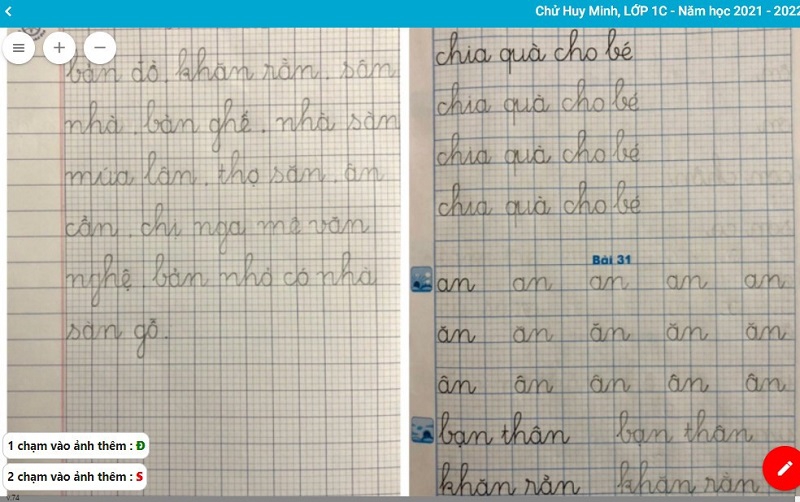 Chử Huy Minh, LỚP 1C - Năm học 2021 - 2022
bản đồ, khăn rằn. sân
nhà. bàn ghế. nhà sàn
múa lân. thợ săn. ân
cần. chị nga mê văn
nghệ bản nhỏ có nhà
sàn gỗ.
1 chạm vào ảnh thêm : Đ
2 chạm vào ảnh thêm : S
v.74
chia quà cho bé
chia quà cho bé
chia quà cho bé
chia quà cho bé
Bài 31
an an an an an
ăn ăn ăn ăn ăn
ân ân ân ân ân
bạn thân bạn thân
khăn rằn khăn rằn